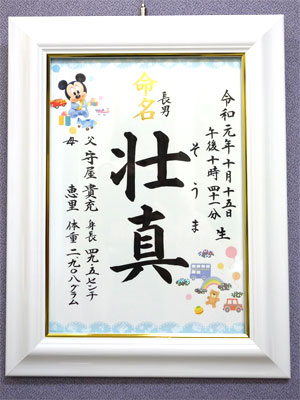 令和元年十月十五日 生
午後十時四十一分
そうま
長男
命名
壮真
父 守屋 貴充 身長 四九・五センチ
母 恵里 体重 二九〇八グラム